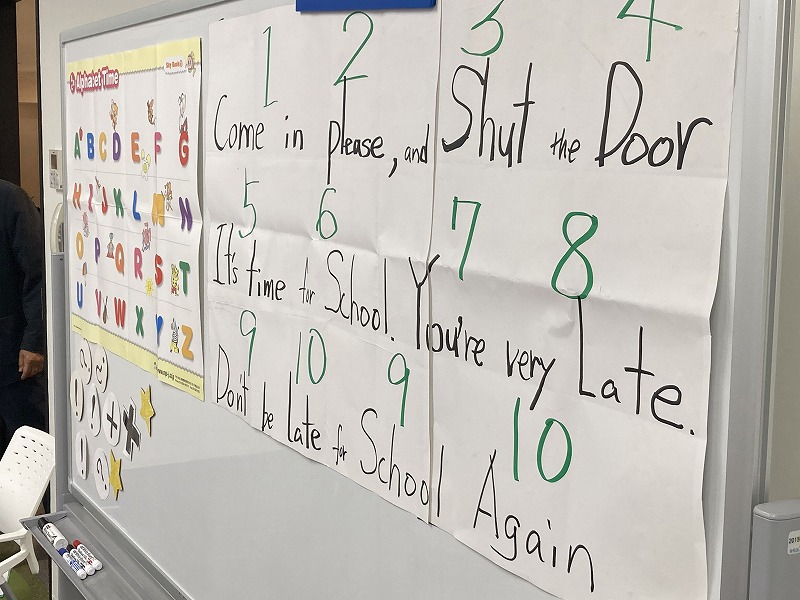 Alphabet Time
A B C D E F G
H I J K L M N
O P Q R S T
U V W X Y Z
1 2 3 4
Come in please, and Shut the Door
5 6 7 8
It's time for School. You're very Late.
9 10 9 10
Don't be Late for School Again